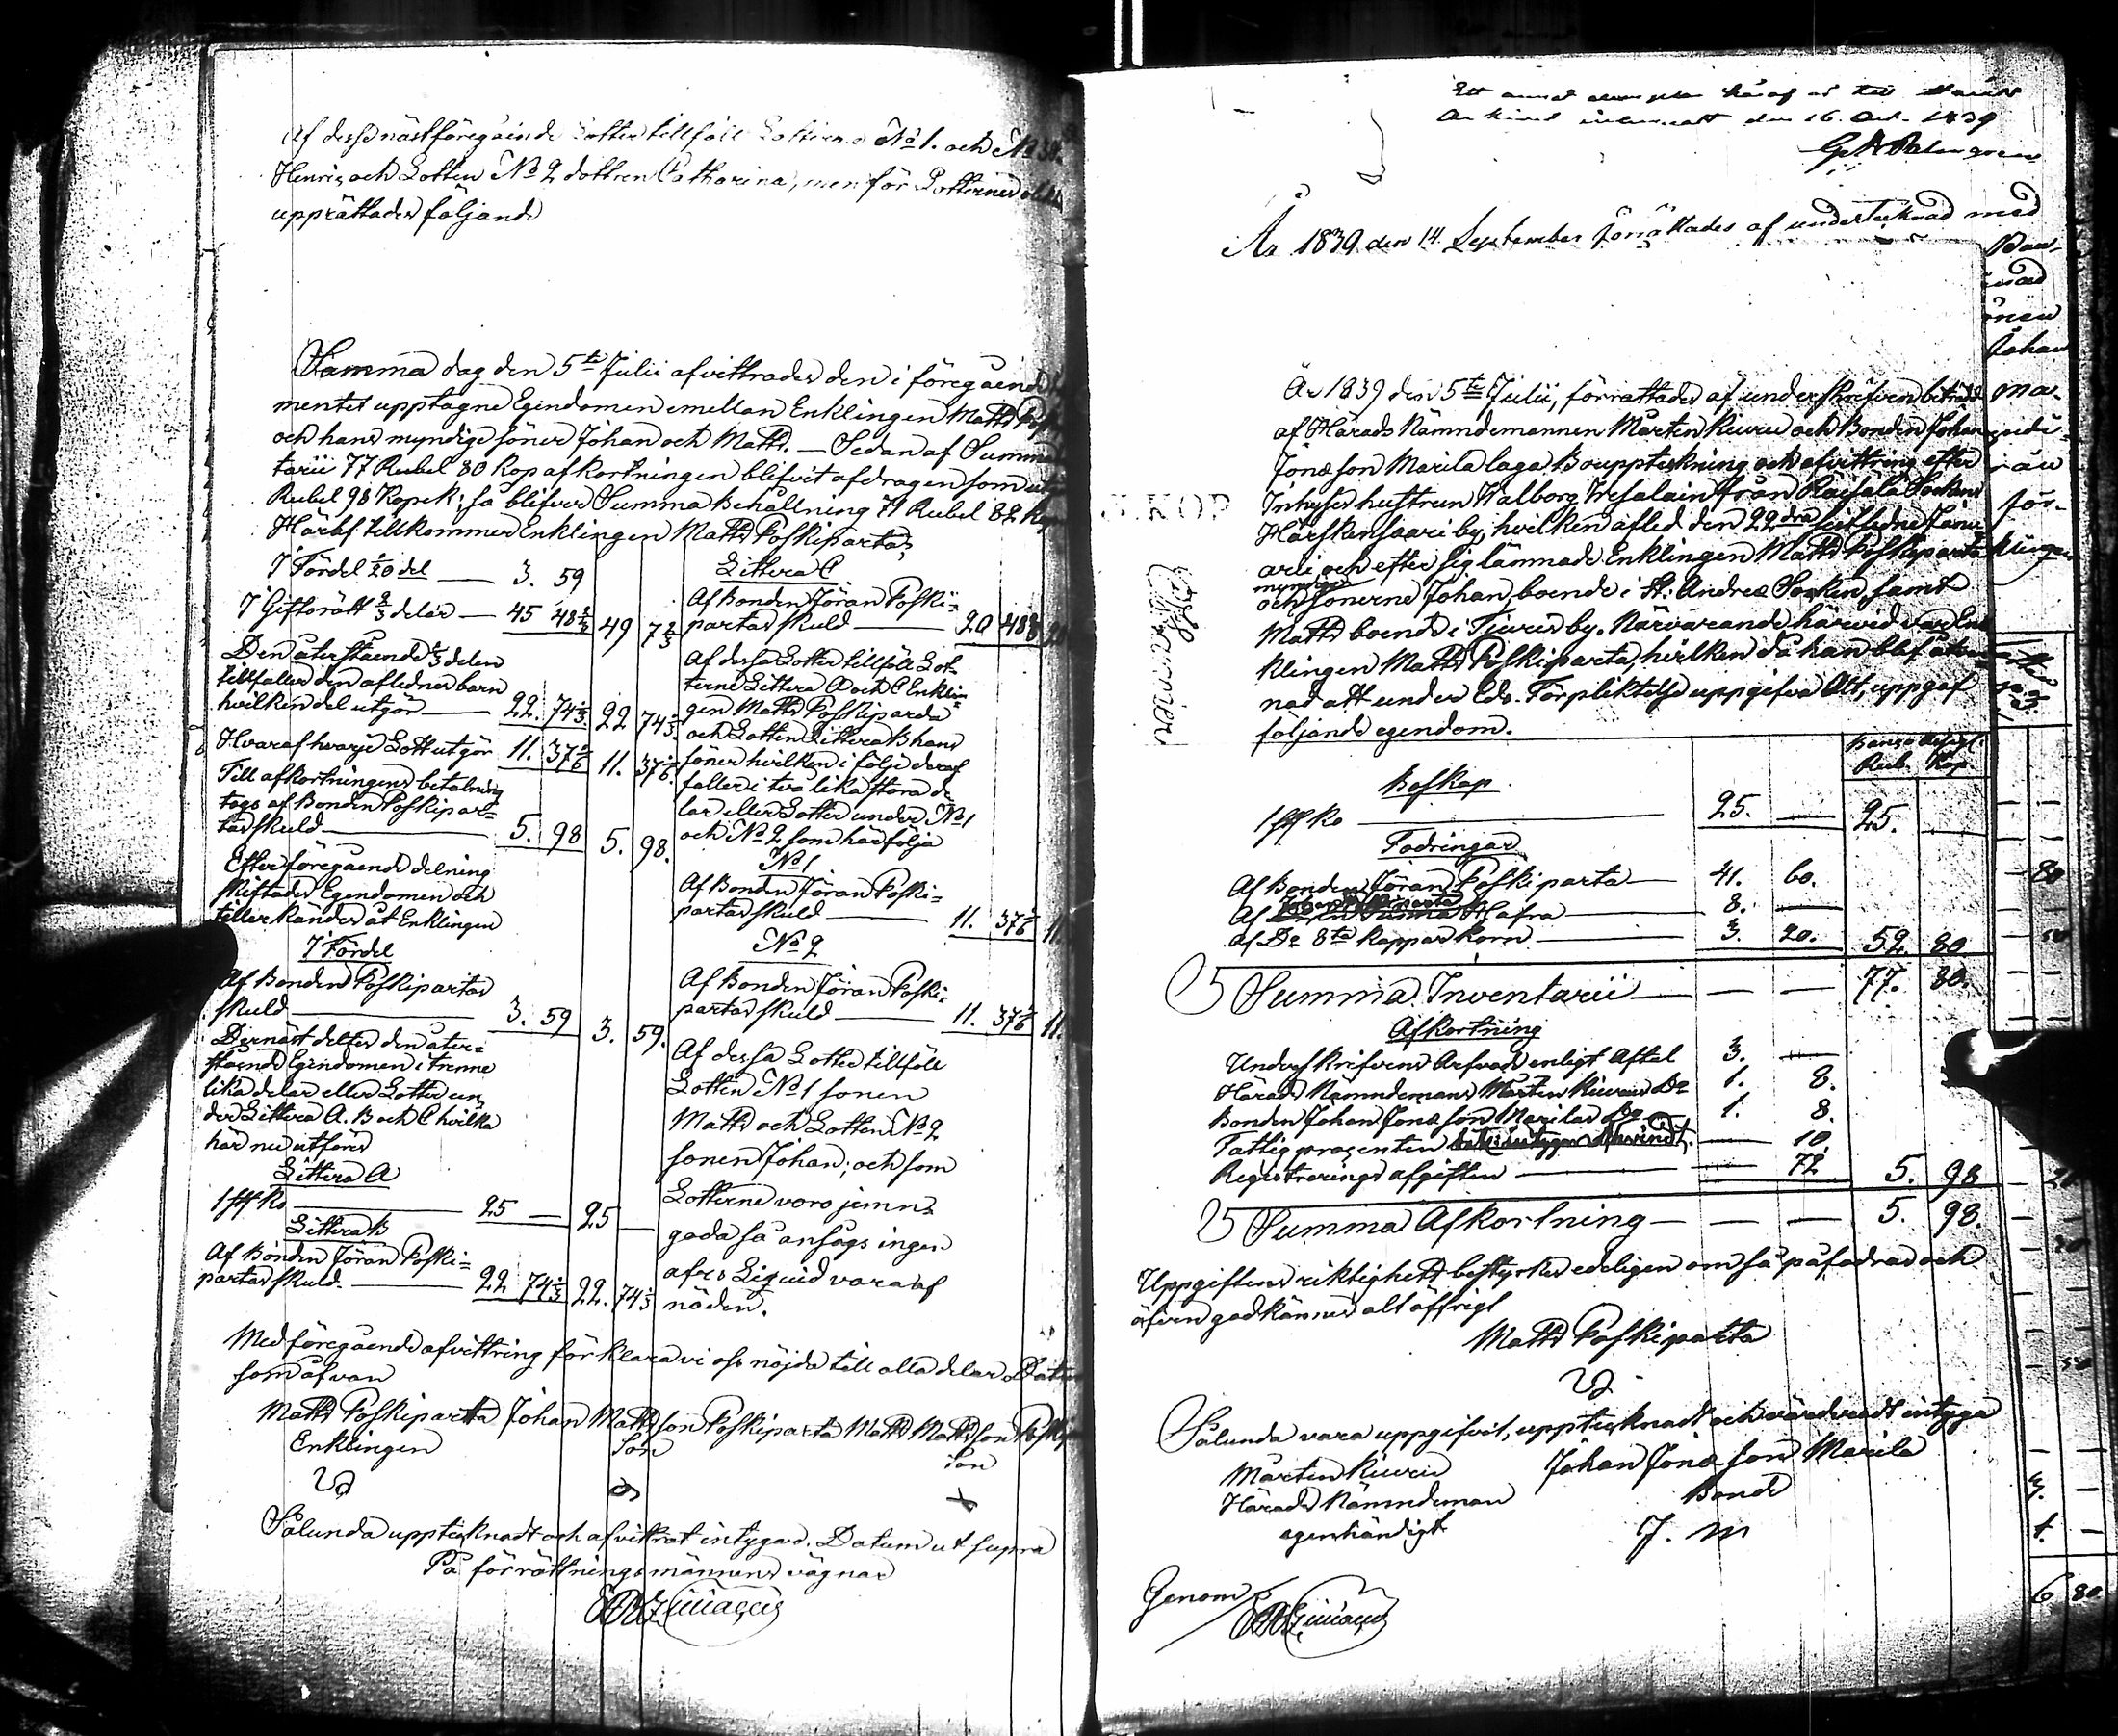 Af desse nästföregående Lotter tillföll Lotterne No 1. och No 3
Henric, och Lotten No 2 dottren Catharina, men för Lotterne
upprättades följande
Samma dag den 5te Julii afvittrades den i föregående
mentet upptagne Egendomen emellan Enklingen Matts
och hans myndige söner Johan och Matts. — Sedan af Summa
tarii 77 Rubel 80 kop afkortningen blifvit afdragen som
Rubel 98 Kopek; så blifver Summa Behållning 71 Rubel 82 kop
Häraf tillkommer Enklingen Matts Poskiparta,
I Fördel 1/20 del — 3. 59
I Giftorätt 2/3 delar — 45 48 2/3 49 7 2/3
Den återstående 1/3 delen
tillfaller den aflednes barn
hvilken del utgör — 22. 74 1/3 22 74 1/3
Hvaraf hvarje Lott utgör 11. 37 1/6 11. 37 1/6
Till afkortningens betalning
togs af Bonden Poskipar=
tas skuld — 5. 98 5. 98.
Efter föregående delning
skiftades Egendomen och
tillerkändes åt Enklingen
I Fördel
Af Bonden Poskipartas
skuld — 3. 59 3. 59.
Dernäst deltes den åter=
stående Egendomen i trenne
lika delar eller Lotter un
der Littera A. B och C hvilka
här nu utföres
Littera A
1 st Ko — 25 — 25 —
Littera B
Af Bonden Jöran Poski=
partas skuld. — 22 74 1/3 22. 74 1/3
Littera C
Af Bonden Jöran Poski=
partas skuld — 20 48
Af dessa Lotter tillföll Lot=
terne Littera A och C Enklin=
gen Matts Poskiparda
och Lotten Littera B hans
söner hvilken i följe deraf
faller i två lika stora de
lar eller Lotter under No 1
och No 2 som här följa
No 1
Af Bonden Jöran Poski=
partas skuld — 11. 37 1/6 11.
No 2
Af Bonden Jöran Poski=
partas skuld — 11. 37 1/6 11.
Af dessa Lotter tillföll
Lotten No 1 sonen
Matts och Lotten No 2
sonen Johan; och som
Lotterne voro jemn=
goda så ansågs ingen
afvs Liquid vara af
nöden.
Med föregående afvittring förklara vi oss nöjda till alla delar. Datum
som ofvan
Matts Poskiparta Johan Mattsson Poskiparta Matts Mattsson
Enklingen Son Son
Sålunda upptecknadt och afvittrat intygas. Datum ut supra
På förrättningsmännens vägnar
Ett annat exemplar häraf är till
den 16. Oct. 1839
År 1839 den 14 September förrättades af undertecknad med
År 1839 den 5te Julii, förrättades af underskrifven biträdd
af Härads Nämndemannen Mårten Kiuru och Bonden Johan
Jönsson Marila laga Bouppteckning och afvittring efter
Inhyses hustrun Walborg från Räisälä Sockens
Härskensaari by, hvilken afled den 22dra sistledne Janu
arii och efter sig lämnade Enklingen Matts Poskiparta
myndige
och sönerne Johan, boende i St. Andreæ Socken, samt
Matts boende i by. Närvarande härvid var En
klingen Matts Poskiparta, hvilken då han blef
nad att under Eds. Förpliktelse uppgifva Allt, uppgaf
följande egendom.
Banco Assign.
Rub. Kop
Boskap.
1 st Ko — 25. — 25. —
Fodringar
Af Bonden Jöran Poskiparta — 41. 60.
Af Hafra — 8. —
Af Do 8ta Kappar Korn — 3. 20. 52. 80
Summa Inventarii — — — 77. 80.
Afkortning
Underskrifvens Arfvode enligt Aftal 3. —
Härads Nämndemans Mårten Kiurus Do 1. 8.
Bonden Johan Jönsson Marilas Do 1. 8.
Fattigprocenten — 10.
Registrerings afgiften — 72 5. 98
Summa Afkortning — — — 5. 98.
Uppgiftens riktighet bestyrkes edeligen om så påfodras och
äfven godkännes alt öffrigt
Matts Poskiparta
Sålunda vara uppgifvit, upptecknadt och värderadt intyga
Mårten Kiuru Johan Jönsson Marila
Härads Nämndeman Bonde
egenhändigt J. M
Genom